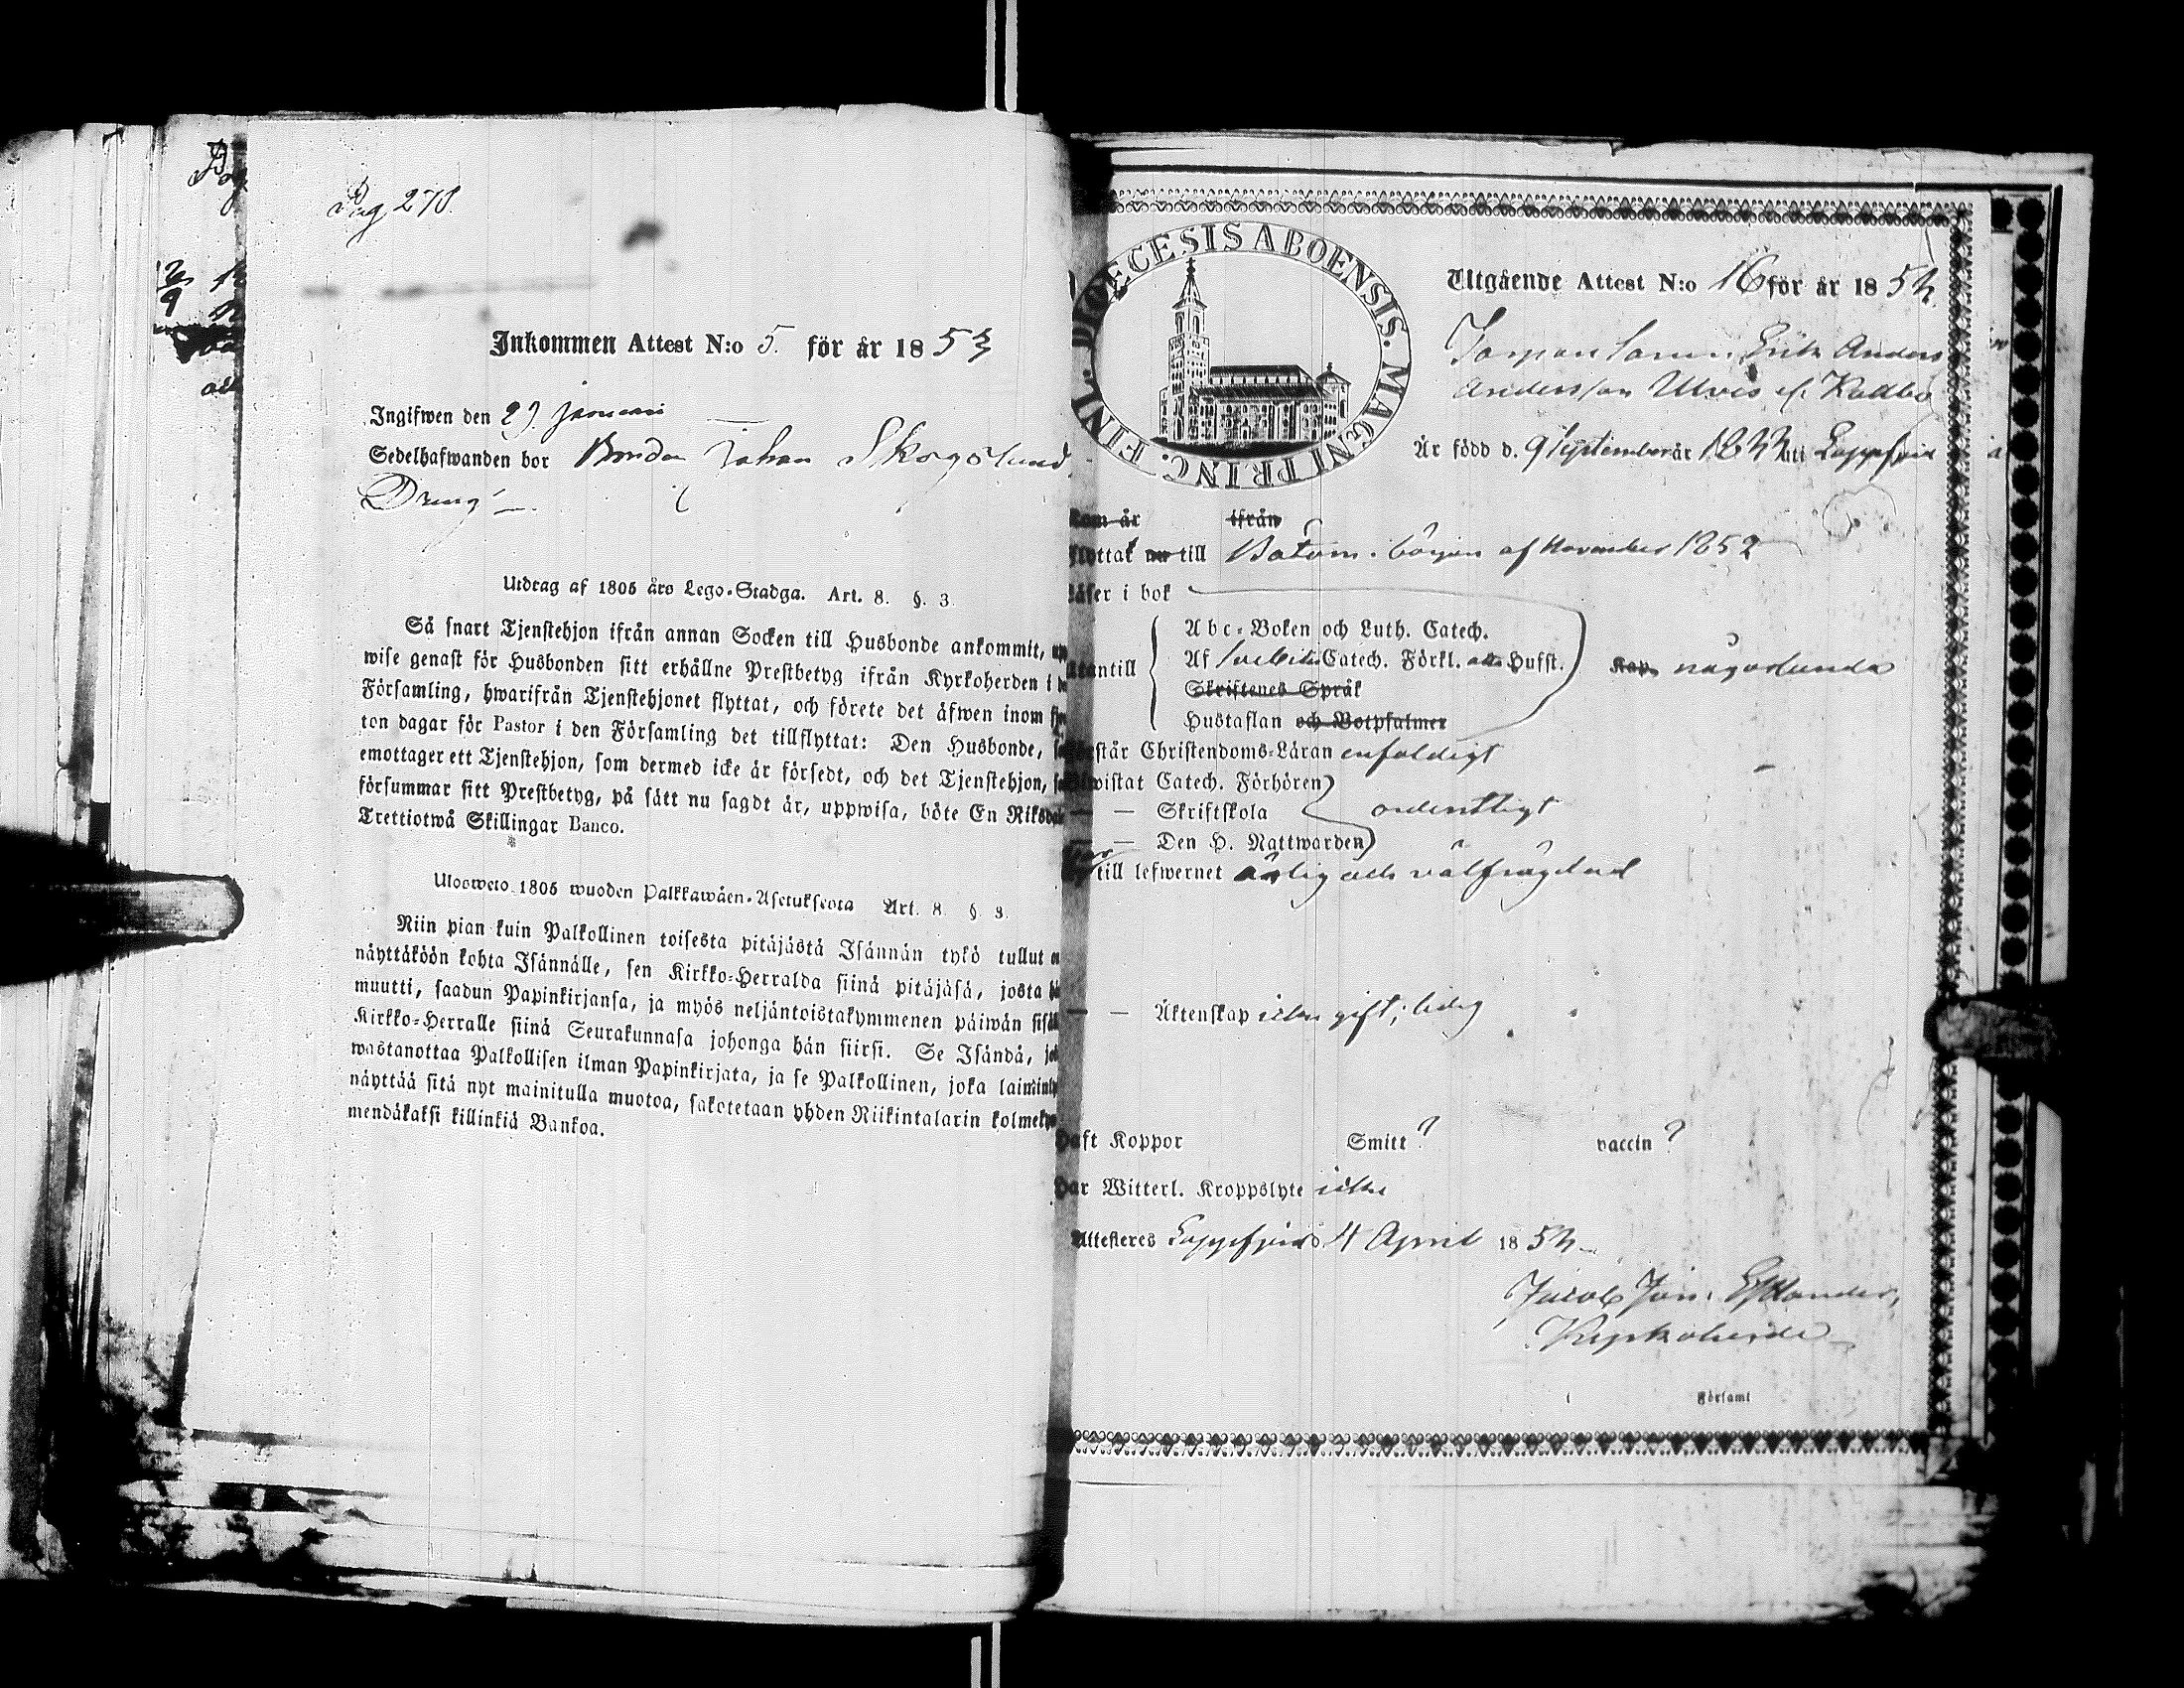 Pag 278.
Inkommen Attest N:o 5. för år 1853
Ingifwen den 29 januari
Sedelhafwanden bor Bonden Johan Skogslund
Dreng
Utdrag af 1805 års Lego-Stadga. Art. 8. §. 3.
Så snart Tjenstehjon ifrån annan Socken till Husbonde ankommit,
wise genast för Husbonden sitt erhållne Prestbetyg ifrån Kyrkoherden i
Församling, hwarifrån Tjenstehjonet flyttat, och förete det äfwen inom
ton dagar för Pastor i den Församling det tillflyttat: Den Husbonde,
emottager ett Tjenstehjon, som dermed icke är försedt, och det Tjenstehjon,
försummar sitt Prestbetyg, på sätt nu sagdt är, uppwisa, böte En
Trettiotwå Skillingar Banco.
Ulosweto 1805 wuoden Palkkawäen-Asetuksesta Art. 8 § 3.
Niin pian kuin Palkollinen toisesta pitäjästä Isännän tykö tullut
näyttäköön kohta Isännälle, sen Kirkko-Herralda siinä pitäjäsä, josta
muutti, saadun Papinkirjansa, ja myös neljäntoistakymmenen päiwän
Kirkko-Herralle siinä Seurakunnasa johonga hän siirsi. Se Isändä,
wastanottaa Palkollisen ilman Papinkirjata, ja se Palkollinen, joka
näyttää sitä nyt mainitulla muotoa, sakotetaan yhden Riikintalarin
mendäkaksi killinkiä Bankoa.
DIOECESIS ABOENSIS. MAGNI PRINC. FINL.
Utgående Attest N:o 16 för år 1854
Erik Anders
Andersson Ulvis
Är född d. 9 September år 1833 uti Lappfjerd
ifrån
till början af November 1852
i bok
Abc-Boken och Luth. Catech.
Af Svebilii Catech. Förkl. Hufst. Kap. någorlunda
Skriftenes Språk
Hustaflan och Botpsalmer
Christendoms-Läran enfaldigt
Catech. Förhören
— Skriftskola ordentligt
— Den H. Nattwarden
till lefwernet ärlig och välfrägdad
— — Äktenskap icke gift; ledig
Haft Koppor Smitt? vaccin?
Har Witterl. Kroppslyte icke
Attesteres Lappfjerd d. 4 April 1854
Jacob Joh. Estlander,
Kyrkoherde
i Församl